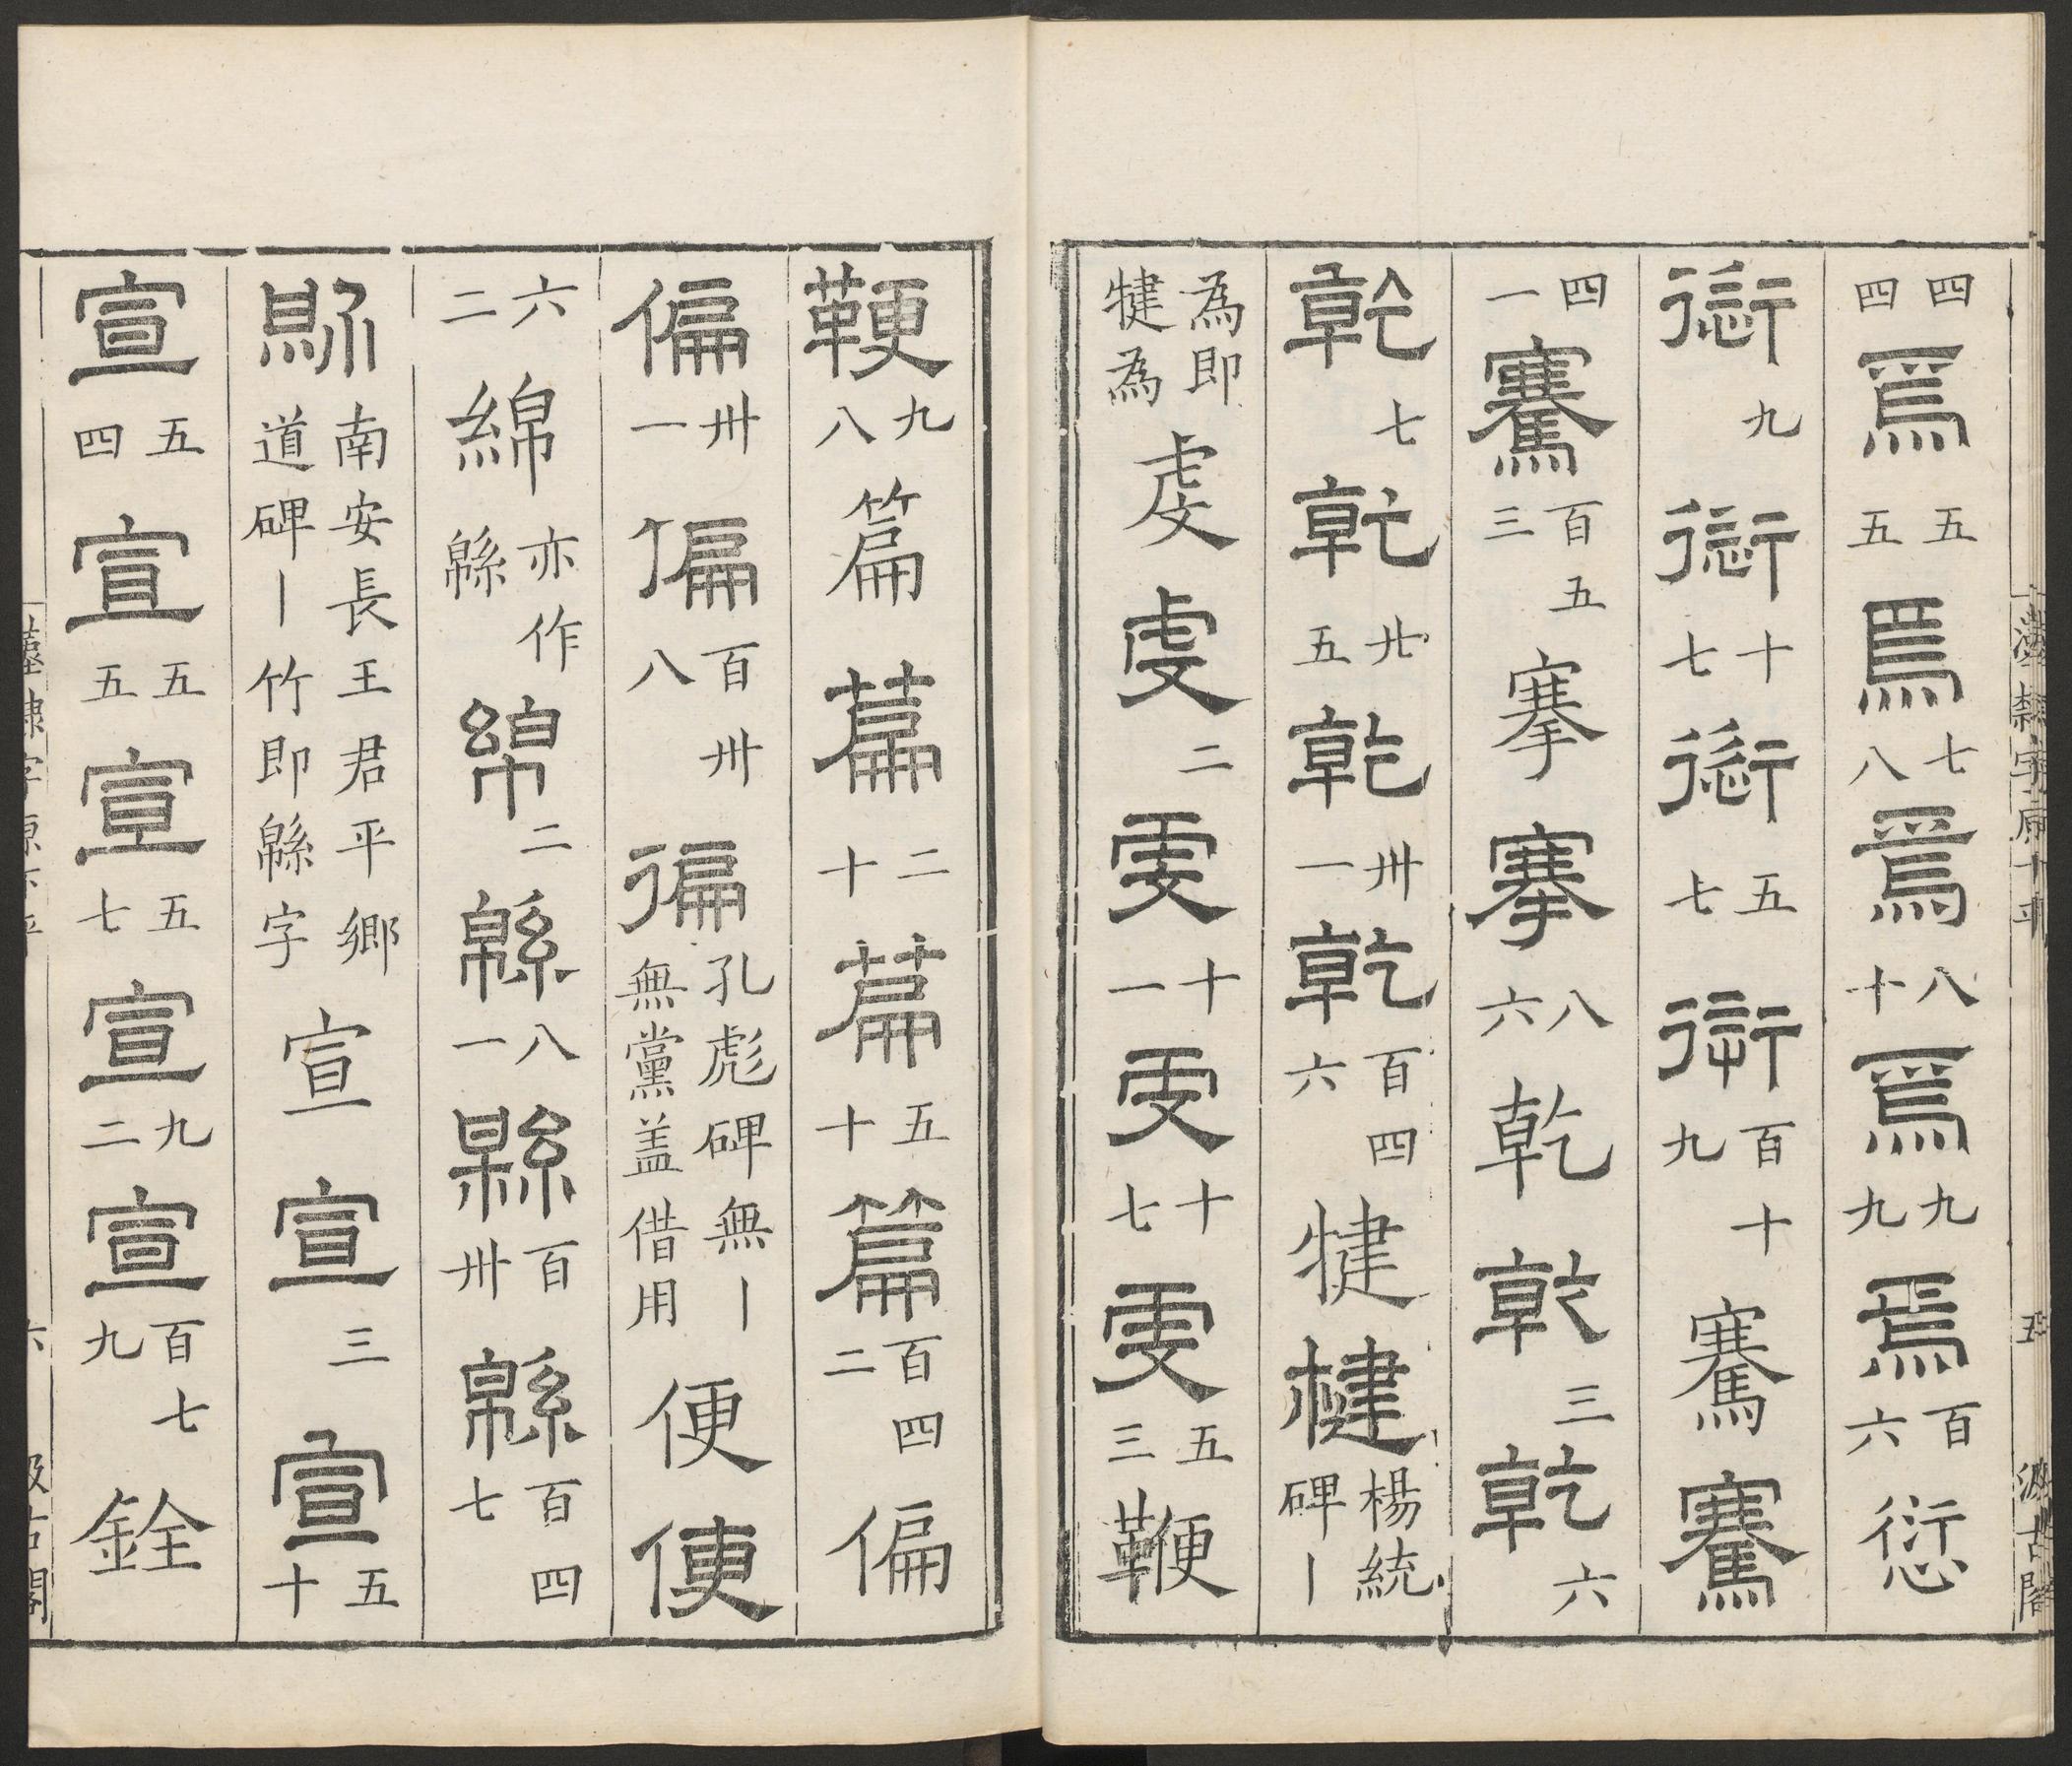 四四焉五五焉七八焉八十焉九九焉百六愆
衍九愆十七愆五七衍百十九騫騫
四一騫百五三搴搴八六乾乾三乾六
乾七乾廿五乾卅一乾百四六犍楗楊統碑丨
為即犍為虔虔二虔十一虔十七虔五三鞭
鞭九八篇篇二十篇五十篇百四二偏
偏卅一偏百卅八徧孔彪碑無丨無黨盖借用便便
六二綿亦作緜綿二緜八一緜百卅緜百四七
南安長王君平鄉道碑丨竹即緜字宣宣三宣五十
宣五四宣五五宣五七宣九二宣百七九銓
漢隸字原下平
五
汲古閣
漢隸字原下平
六
汲古閣